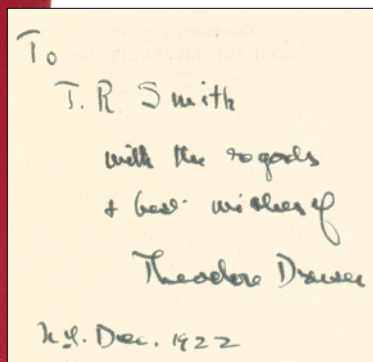 To
T. R Smith
with the regards
& best wishes of
Theodore Dreiser
N.Y. Dec. 1922